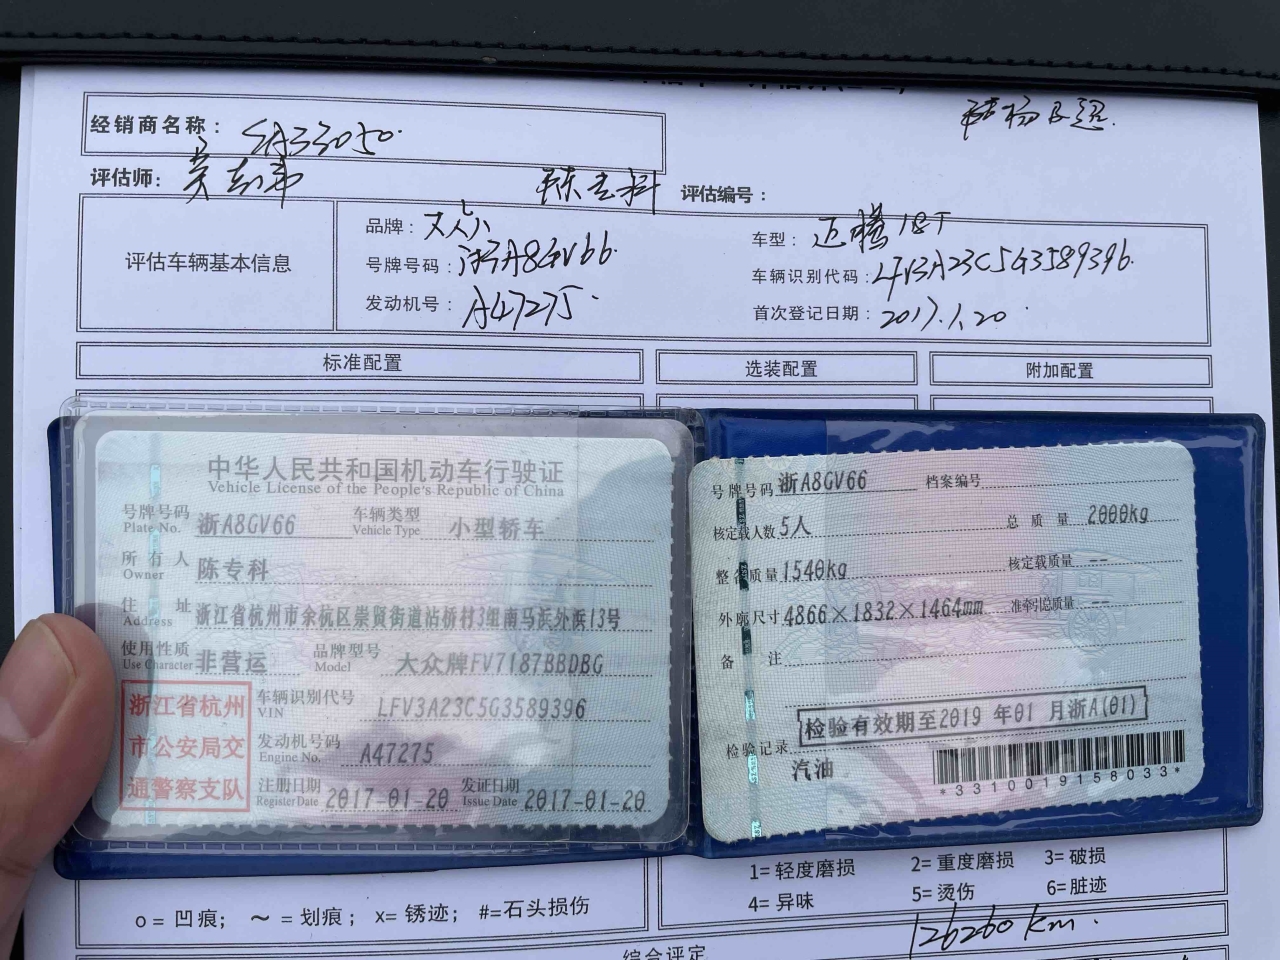 经销商名称： SA33050.
评估师： 陈专科 评估编号：
评估车辆基本信息
品牌： 大众
号牌号码： 浙A8GV66.
发动机号： A47275.
车型： 迈腾18T
车辆识别代码： LFV3A23C5G3589396.
首次登记日期： 2017.1.20
标准配置 选装配置 附加配置
中华人民共和国机动车行驶证
Vehicle License of the People's Republic of China
号牌号码 浙A8GV66 车辆类型 小型轿车
Plate No. Vehicle Type
所有人 陈专科
Owner
住址 浙江省杭州市余杭区崇贤街道沾桥村3组南马浜外浜13号
Address
使用性质 非营运 品牌型号 大众牌FV7187BBDBG
Use Character Model
浙江省杭州
市公安局交
通警察支队
车辆识别代号 LFV3A23C5G3589396
VIN
发动机号码 A47275
Engine No.
注册日期 2017-01-20 发证日期 2017-01-20
Register Date Issue Date
号牌号码 浙A8GV66 档案编号
核定载人数 5人 总质量 2000kg
整备质量 1540kg 核定载质量 --
外廓尺寸 4866×1832×1464mm 准牵引总质量 --
备注
检验有效期至2019 年01 月浙A(01)
检验记录
汽油
*3310019158033*
o = 凹痕； ～ = 划痕； x= 锈迹； #=石头损伤
1= 轻度磨损 2= 重度磨损 3= 破损
4= 异味 5= 烫伤 6=脏迹
126260 km.
综合评定